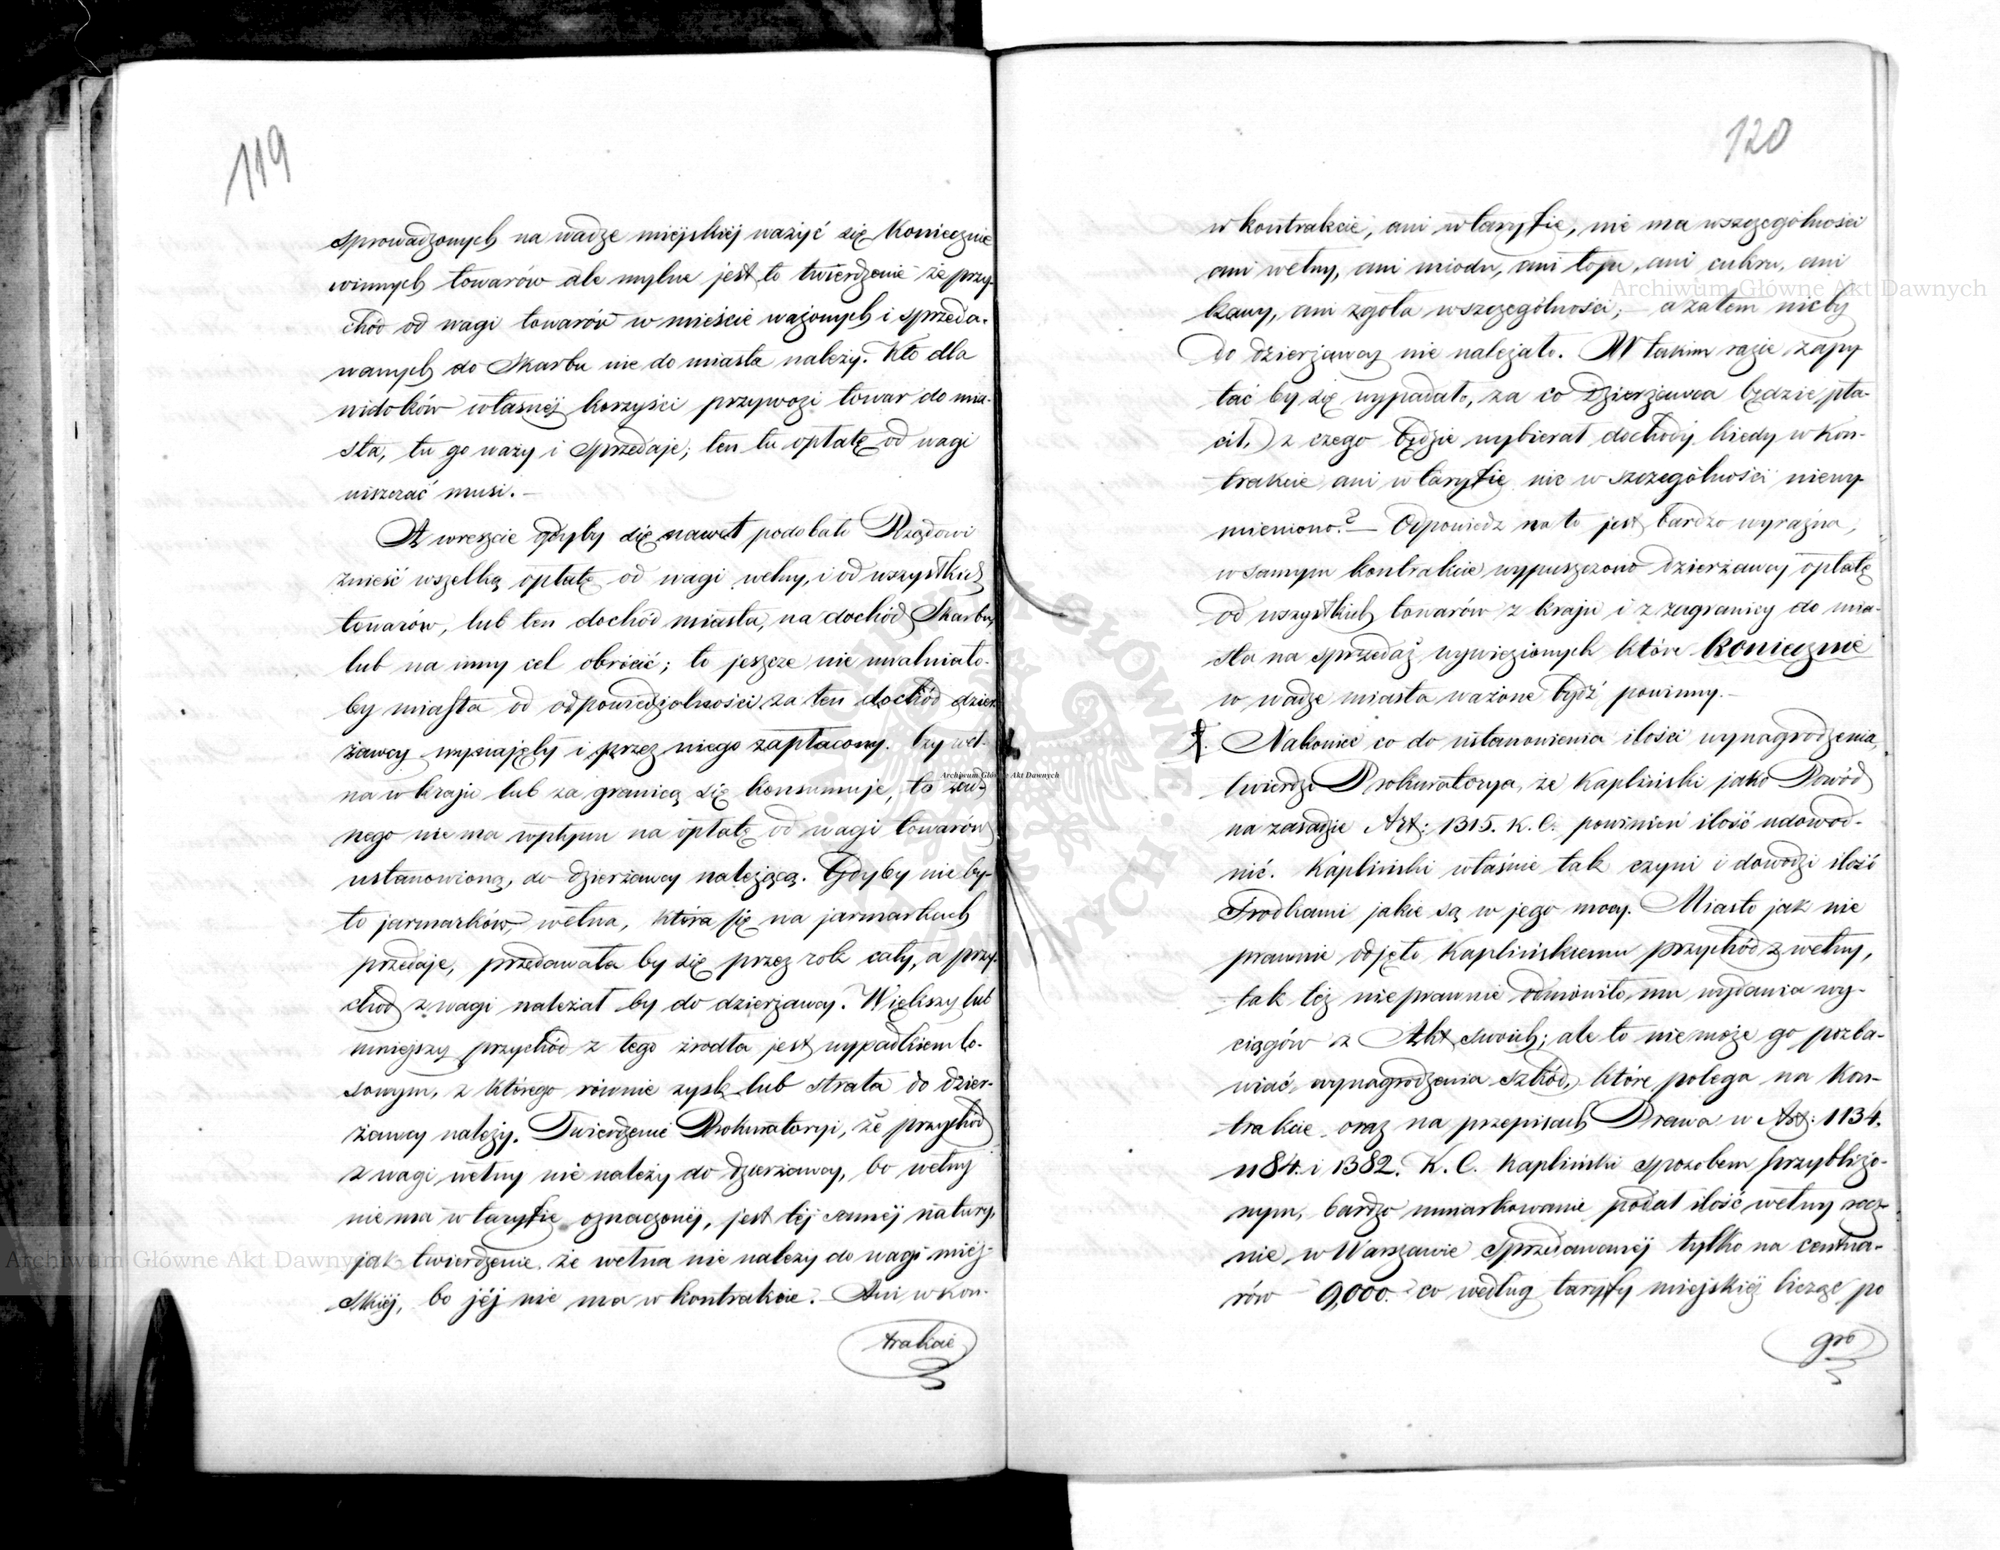 119
sprowadzonych na wadze miejskiej ważyć się koniecznie
winnych towarów ale mylne jest to twierdzenie że przy-
chód od wagi towarów w mieście ważonych i sprzeda-
wanych do Skarbu nie do miasta należy. Kto dla
widoków własnej korzyści przywozi towar do mia-
sta, tu go waży i sprzedaje; ten tu opłatę od wagi
uiszczać musi. —
A wreszcie gdyby się nawet podobało Rządowi
znieść wszelką opłatę od wagi wełny, i od wszystkich
towarów, lub ten dochód miasta, na dochód Skarbu,
lub na inny cel obrócić; to jeszcze nie uwalniało-
by miasta od odpowiedzialności za ten dochód dzier
żawcy wynajęty i przez niego zapłacony. Czy weł-
na w kraju lub za granicą się konsumuje, to żad-
nego nie ma wpływu na opłatę od wagi towarów
ustanowioną, do dzierżawcy należącą. Gdyby nie by-
ło jarmarków, wełna, która się na jarmarkach
przedaje, przedawała by się przez rok cały, a przy-
chód z wagi należał by do dzierżawcy. Większy lub
mniejszy przychód z tego źrodła jest wypadkiem lo-
sowym, z którego równie zysk lub strata do dzier-
żawcy należy. Twierdzenie Prokuratoryi, że przychód
z wagi wełny nie należy do dzierżawcy, bo wełny
nie ma w taryfie oznaczonej, jest tej samej natury,
jak twierdzenie, że wełna nie należy do wagi miej-
skiej, bo jej nie ma w kontrakcie. — Ani w kon-
trakcie
120
w kontrakcie, ani w taryfie, nie ma wszczególności
ani wełny, ani miodu, ani łoju, ani cukru, ani
kawy, ani zgoła wszczególności; — a zatem nic by
do dzierżawcy nie należało. W takim razie zapy
tać by się wypadało, za co dzierżawca będzie pła-
cił, z czego będzie wybierał dochody kiedy w kon-
trakcie ani w taryfie nic w szczególności niewy
mieniono? — Odpowiedz na to jest bardzo wyraźna,
w samym kontrakcie wypuszczono dzierżawcy opłatę
od wszystkich towarów z kraju i z zagranicy do mia-
sta na sprzedaż wywiezionych które koniecznie
w wadze miasta ważone bydź powinny. —
Nakoniec co do ustanowienia ilości wynagrodzenia,
twierdzi Prokuratorya, że Kapliński jako Powód
na zasadzie Art: 1315. K. C. powinien ilość udowod-
nić. Kapliński właśnie tak czyni i dowodzi ilość
środkami jakie są w jego mocy. Miasto jak nie
prawnie odjęło Kaplińskiemu przychód z wełny,
tak też nieprawnie odmówiło mu wydania wy-
ciągów z Akt swoich; ale to nie może go pozba-
wiać wynagrodzenia szkód, które polega na kon-
trakcie oraz na przepisach Prawa w Art: 1134.
1184. i 1382. K. C. Kapliński sposobem przybliżo-
nym, bardzo umiarkowanie podał ilość wełny rocz-
nie w Warszawie sprzedawanej tylko na centna-
rów 9,000. co według taryfy miejskiej licząc po
gro
Archiwum Główne Akt Dawnych
Archiwum Główne Akt Dawnych
Archiwum Główne Akt Dawnych
Archiwum Główne Akt Dawnych